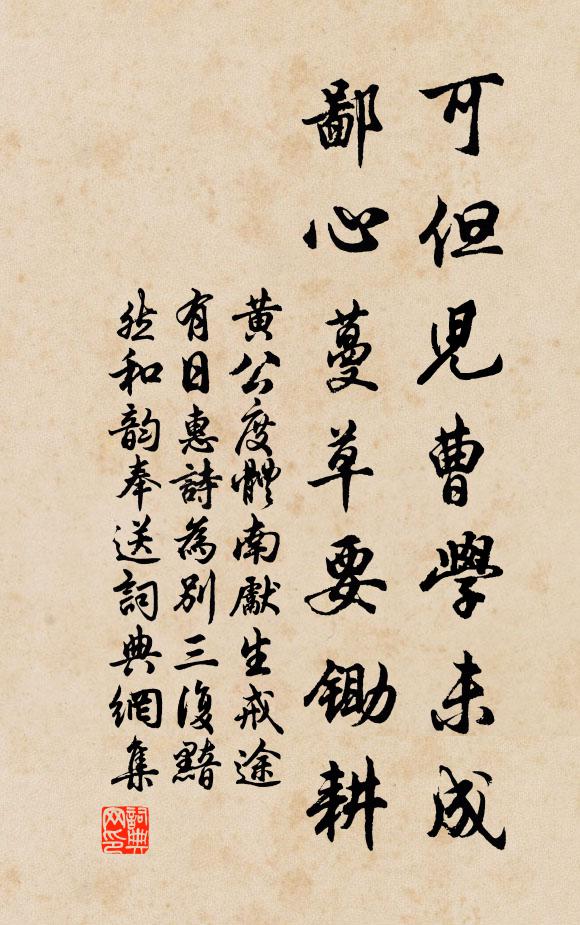 可但兒曹學未成
鄙心蔓草要鋤耕
黃公度體南獻生戒途
有日惠詩為別三復黯
然和韵奉送詞典網集
詞典網印